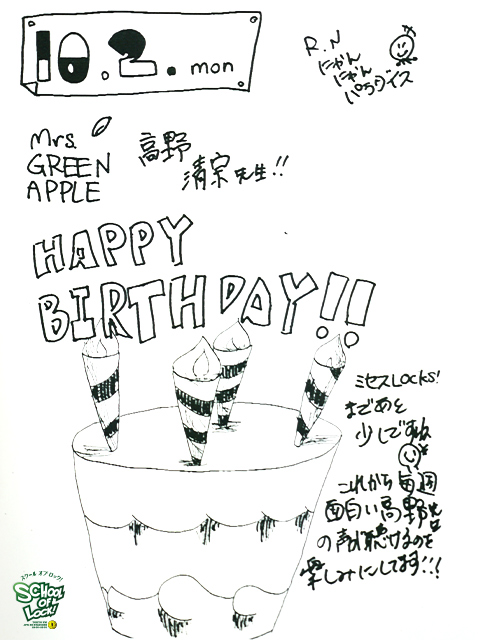 10.2.mon
R.N
にゃん
にゃん
パラダイス
Mrs.
GREEN
APPLE
高野
清宗先生!!
HAPPY
BIRTHDAY!!
ミセスLOCKS!
まであと
少しですね
これから毎週
面白い高野先生
の声が聴けるのを
楽しみにしてます!!
スクール オブ ロック!
SCHOOL
OF
LOCK!